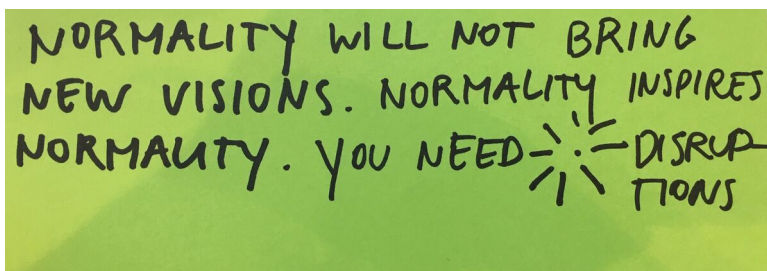 NORMALITY WILL NOT BRING
NEW VISIONS. NORMALITY INSPIRES
NORMALITY. YOU NEED DISRUP
TIONS